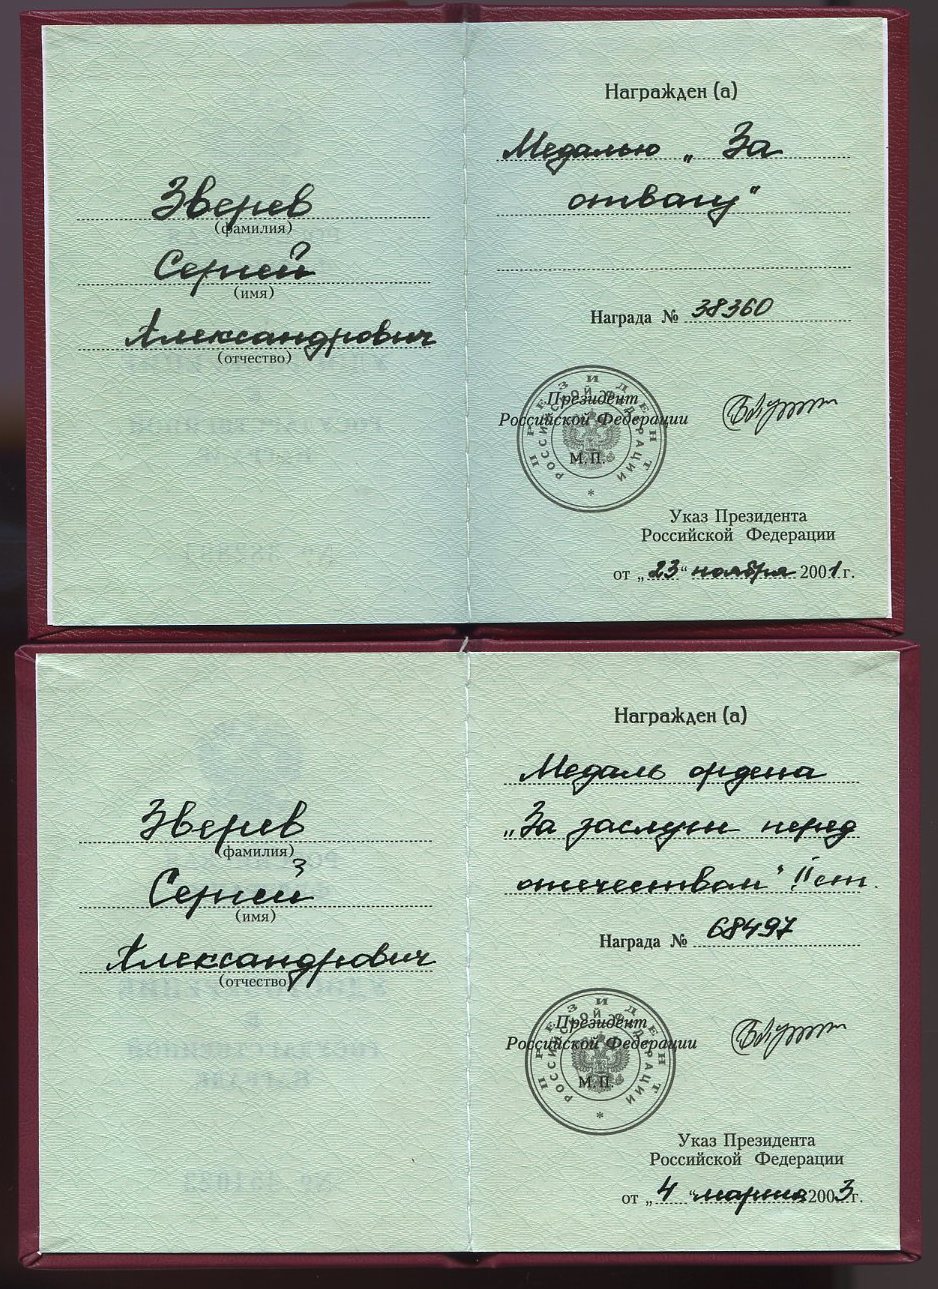 Зверев
(фамилия)
Сергей
(имя)
Александрович
(отчество)
Награжден (а)
Медалью „За
отвагу"
Награда № 38360
Президент
Российской Федерации
М.П.
ПРЕЗИДЕНТ
РОССИЙСКОЙ ФЕДЕРАЦИИ
Указ Президента
Российской Федерации
от „23" ноября 2001 г.
Зверев
(фамилия)
Сергей
(имя)
Александрович
(отчество)
Награжден (а)
Медаль ордена
„За заслуги перед
отечеством" II ст.
Награда № 68497
Президент
Российской Федерации
М.П.
ПРЕЗИДЕНТ
РОССИЙСКОЙ ФЕДЕРАЦИИ
Указ Президента
Российской Федерации
от „4" марта 2003 г.